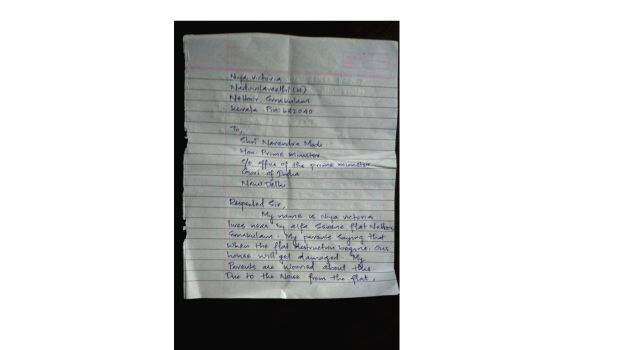 Niya Victoria
Naduvilaveethil (H)
Nettoor, Ernakulam
Kerala Pin: 682040
To,
Shri Narendra Modi
Hon. Prime Minister
C/o office of the prime minister
Govt. of India
New Delhi
Respected Sir,
My name is Niya Victoria
lives near by Alfa Serene flat Nettoor
Ernakulam. My parents saying that
when the flat destruction begins. Our
house will get damaged. My
Parents are worried about this
Due to the Noise from the flat,